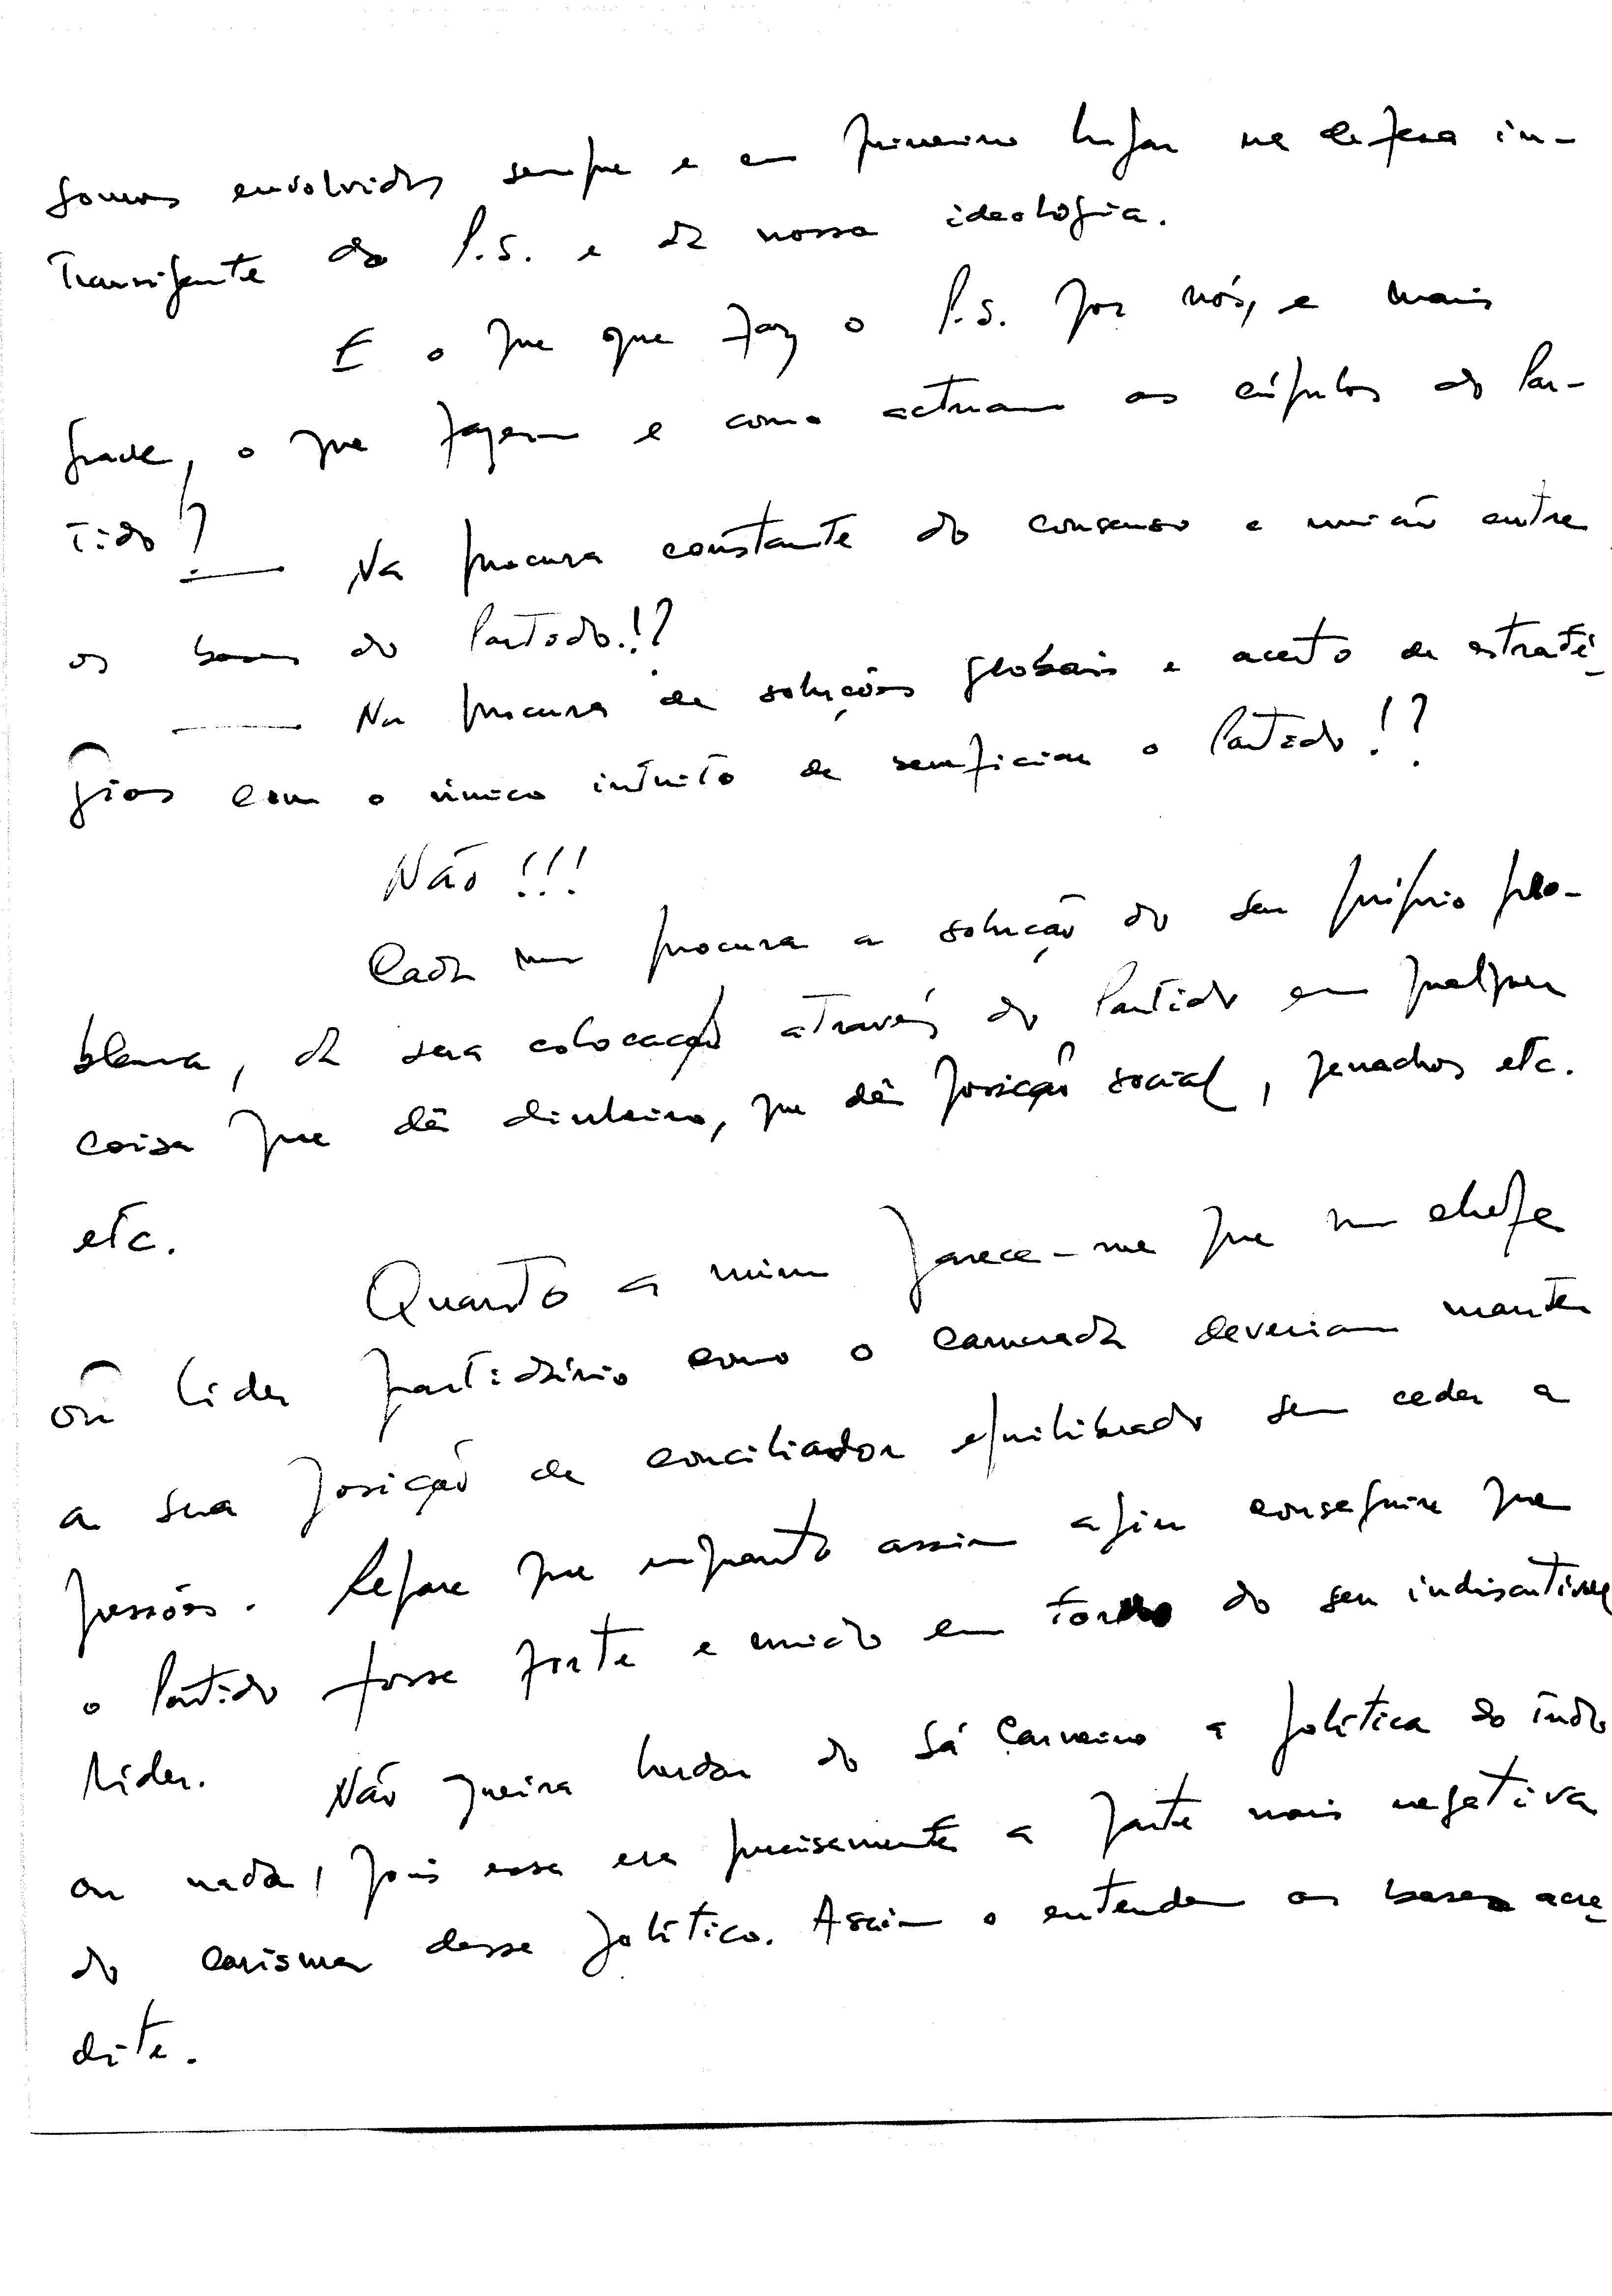 somos envolvidos sempre e em primeiro lugar na defesa in-
transigente do P.S. e da nossa ideologia.
E o que que faz o P.S. por nós, e mais
grave, o que fazem e como actuam as cúpulas do Par-
tido?
— Na procura constante do consenso e união entre
as bases do Partido!?
— Na procura de soluções globais e acerto de estraté-
gias com o único intuito de beneficiar o Partido!?
Não!!!
Cada um procura a solução do seu próprio pro-
blema, da sua colocação através do Partido em qualquer
coisa que dê dinheiro, que dê posição social, penachos etc.
etc.
Quanto a mim parece-me que um chefe
ou lider partidário como o camarada deveriam manter
a sua posição de conciliador equilibrado sem ceder a
pressões. Repare que enquanto assim agiu conseguiu que
o Partido fosse forte e unido em torno do seu indiscutivel
lider. Não queira herdar do Sá Carneiro a politica do tudo
ou nada, pois essa era precisamente a parte mais negativa
do carisma desse politico. Assim o entendem as bases acre-
dite.